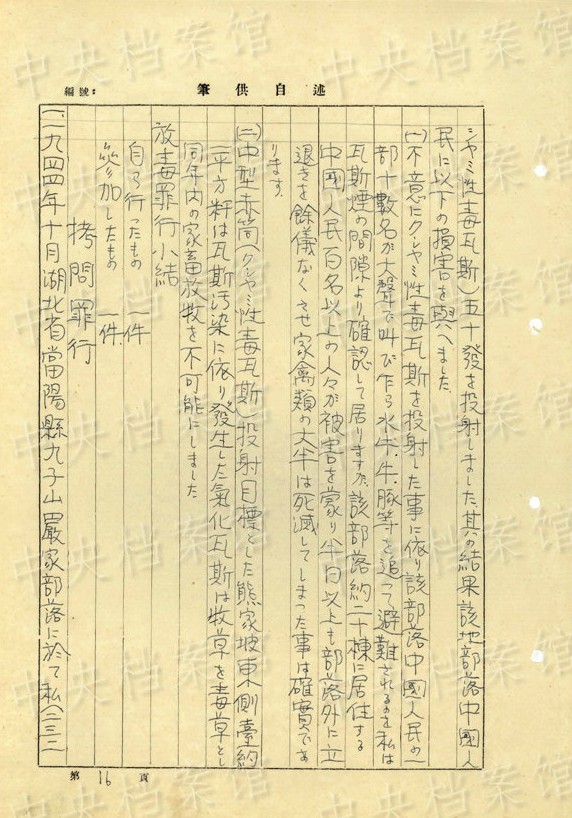 編號：
筆供自述
シャミ性毒瓦斯）五十發を投射しました其の結果該地部落中國人
民に以下の損害を與へました
(一)不意にクシャミ性毒瓦斯を投射した事に依り該部落中國人民の一
部十數名が大聲で叫び乍ら水牛、牛、豚等を追って避難されるのを私は
瓦斯煙の間隙より確認して居りますが、該部落約二十棟に居住する
中國人民百名以上の人々が被害を蒙り半日以上も部落外に立
退きを餘儀なくさせ家禽類の大半は死滅してしまった事は確實であ
ります。
(二)中型赤筒（クシャミ性毒瓦斯）投射目標とした熊家坡東側臺約
一平方粁は瓦斯汚染に依り發生した氣化瓦斯は牧草を毒草とし
同年内の家畜放牧を不可能にしました
放毒罪行小結
自ら行ったもの　一件
參加したもの　一件、
拷問罪行
(一、一九四四年十月湖北省當陽縣九子山嚴家部落に於て私（二三二
第 16 頁
中央档案馆